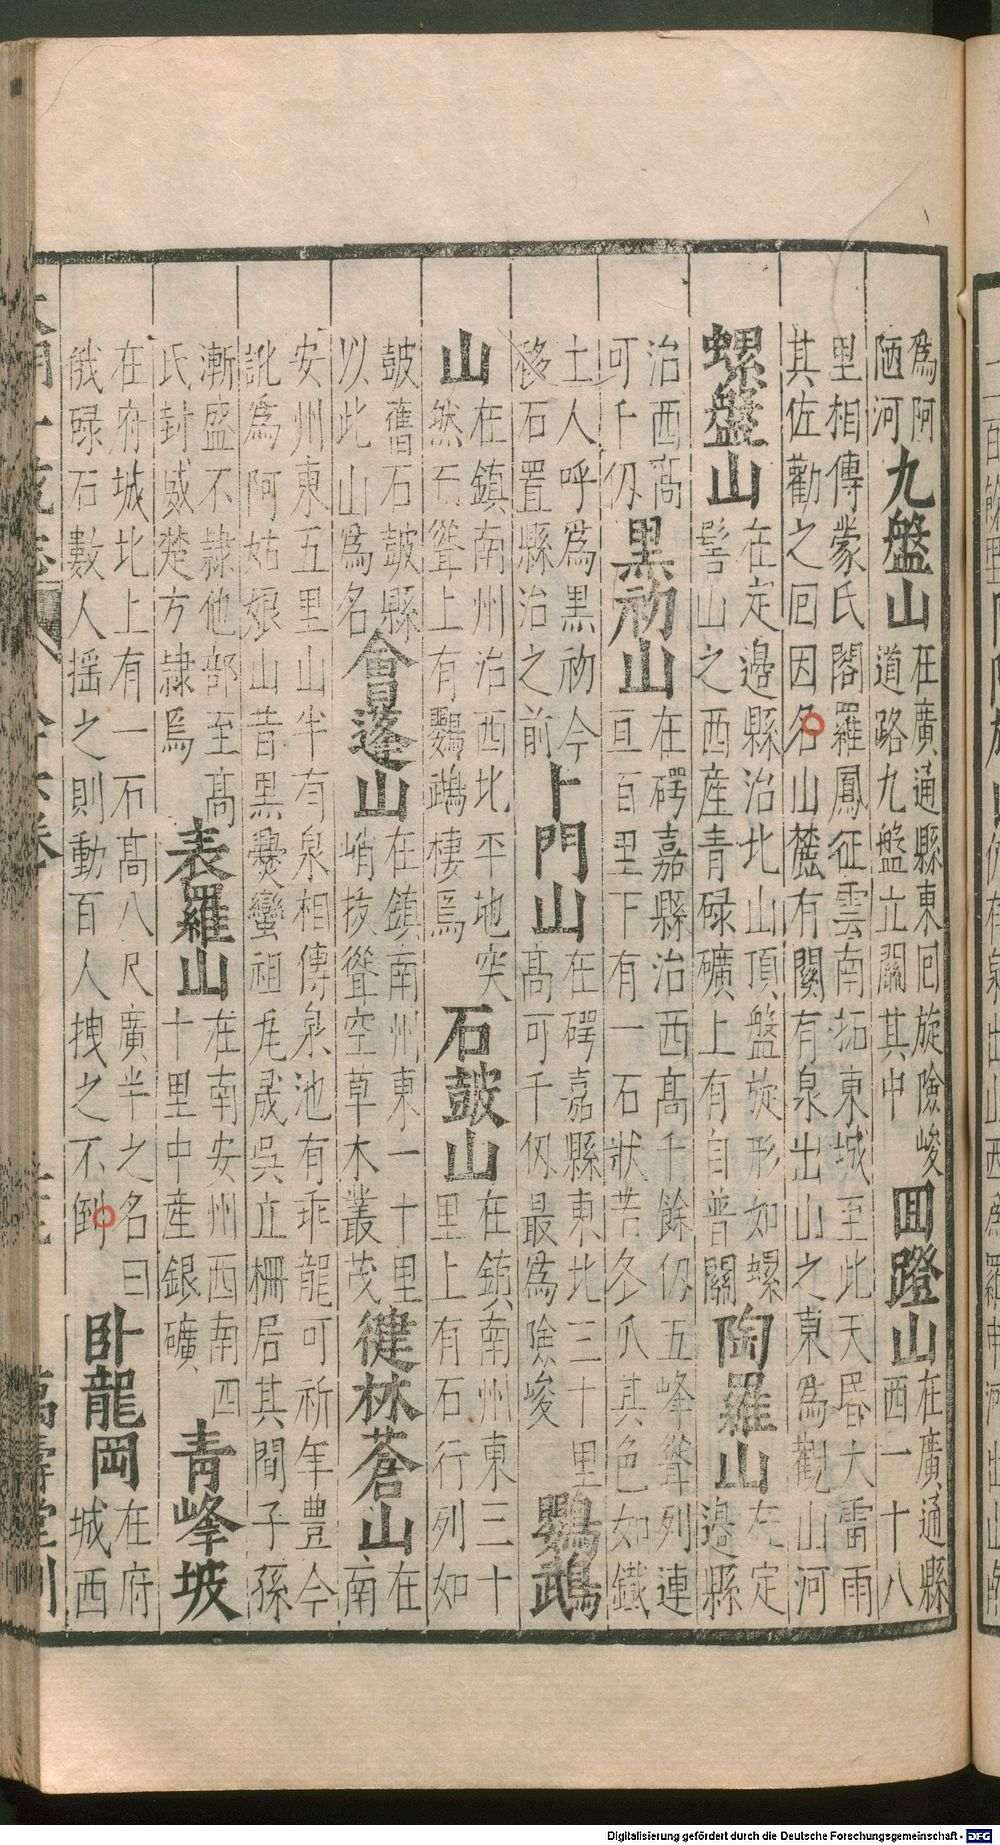 爲阿
陋河
九盤山
在廣通縣東囘旋險峻
道路九盤立關其中
囬蹬山
在廣通縣
西一十八
里相傳蒙氏閣羅鳳征雲南拓東城至此天昬大雷雨
其佐勸之囘因名山麓有關有泉出山之東爲觀山河
螺盤山
在定邊縣治北山頂盤旋形如螺
髻山之西產青碌礦上有自普關
陶羅山
在定
邊縣
治西高
可千仭
黑初山
在碍嘉縣治西高千餘仭五峰聳列連
亘百里下有一石狀若冬瓜其色如鐵
土人呼爲黑初今
移石置縣治之前
上門山
在碍嘉縣東北三十里
高可千仭最爲險峻
鸚鵡
山
在鎮南州治西北平地突
然石聳上有鸚鵡棲焉
石皷山
在鎮南州東三十
里上有石行列如
皷舊石皷縣
以此山爲名
會蓬山
在鎮南州東一十里
峭拔聳空草木叢茂
健林蒼山
在
南
安州東五里山半有泉相傳泉池有乖龍可祈年豊今
訛爲阿姑娘山昔黑爨蠻祖尨晟吳立柵居其間子孫
漸盛不隷他部至高
氏封威楚方隷焉
表羅山
在南安州西南四
十里中產銀礦
青峰坡
在府城北上有一石高八尺廣半之名曰
俄碌石數人揺之則動百人拽之不倒
臥龍岡
在府
城西
Digitalisierung gefördert durch die Deutsche Forschungsgemeinschaft - DFG